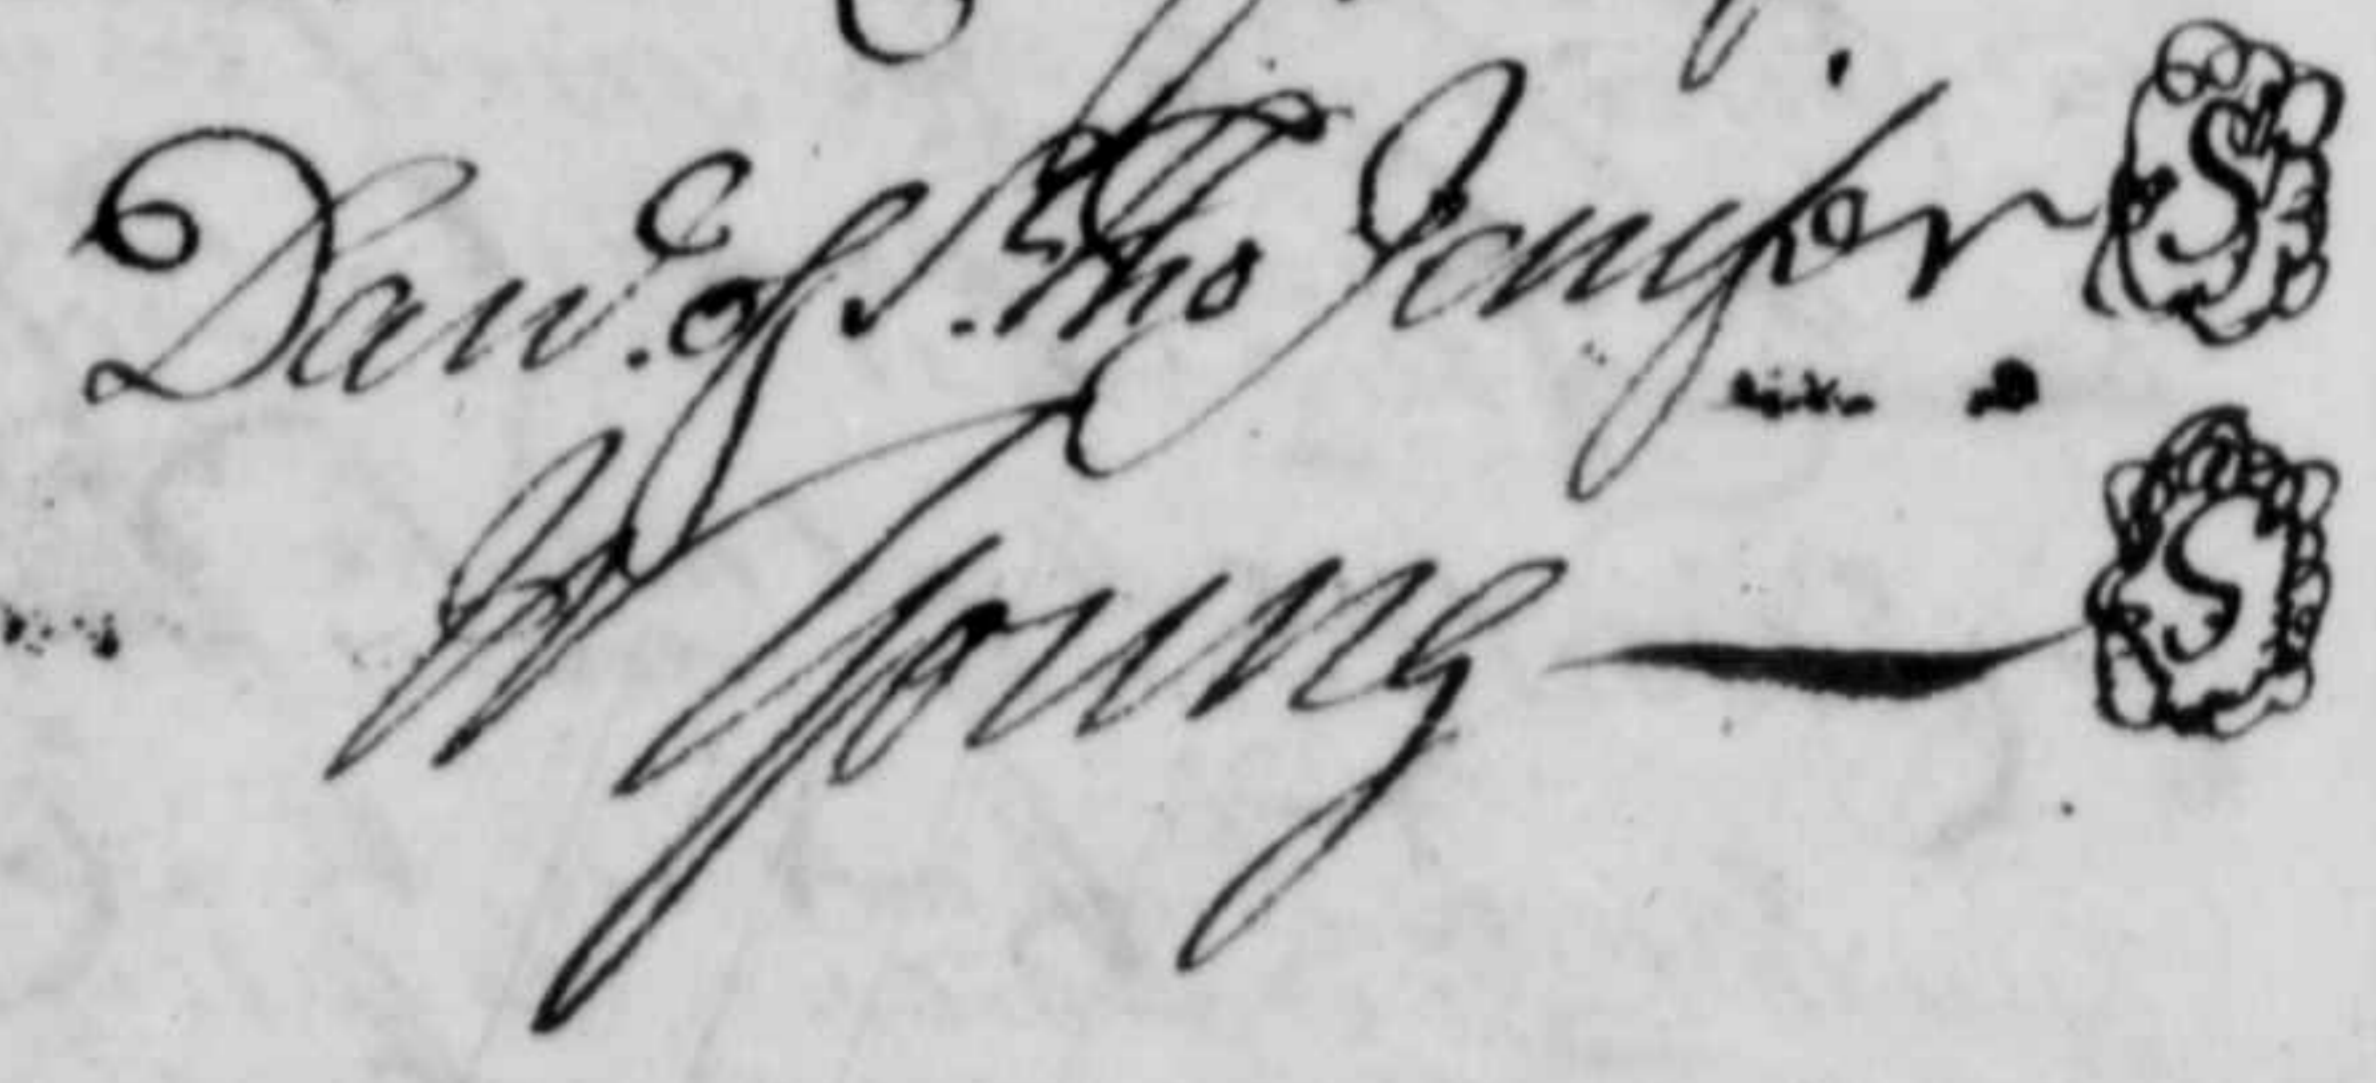 Dan.^e of S.^t Tho Jenifer S
W Young S